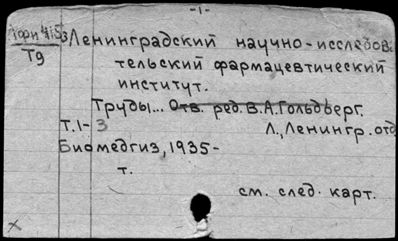 -1-
Ленинградский научно-исследов.
Т9
тельский фармацевтический
институт.
Труды... Отв. ред. В.А. Гольдберг.
Т.1-3 Л., Ленингр. отд.
Биомедгиз, 1935-
т.
см. след. карт.